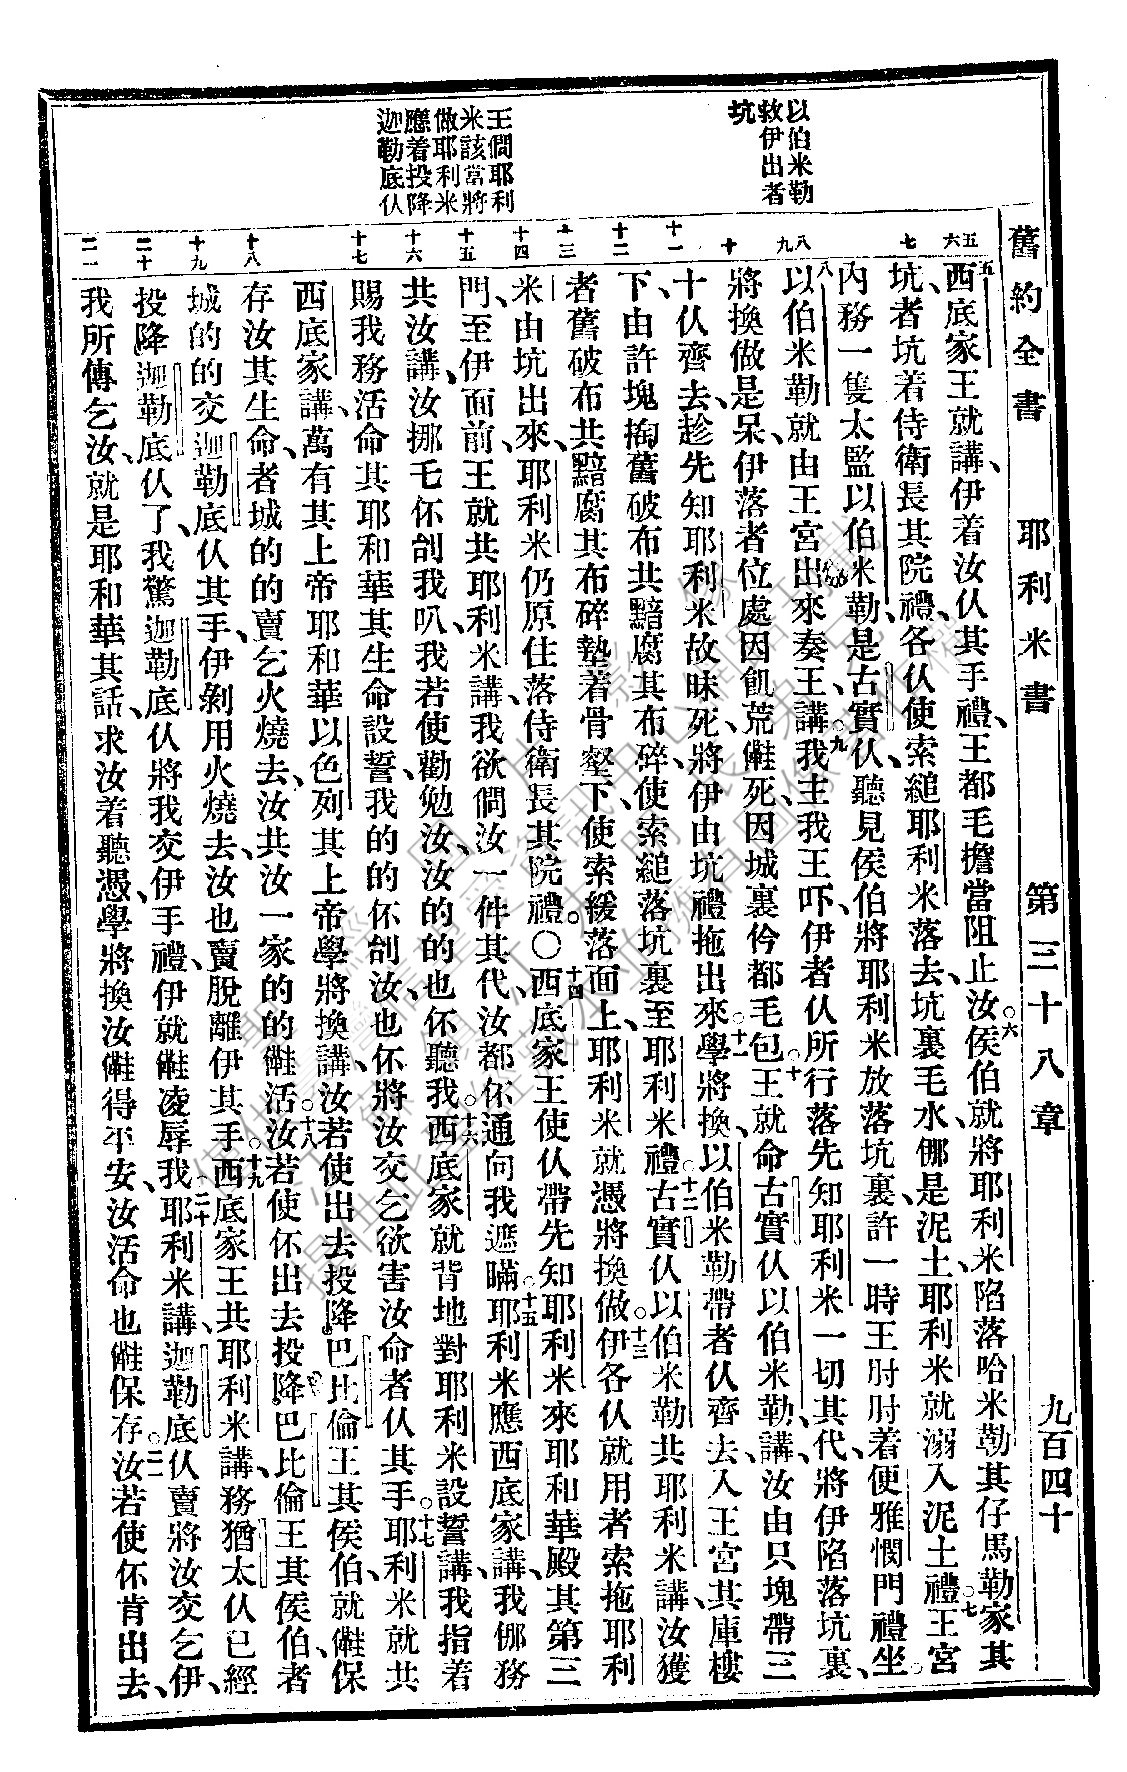 舊約全書 耶利米書 第三十八章 九百四十
以伯米勒
救伊出者
坑
王僩耶利
米該當將
做耶利米
應着投降
迦勒底仈
五 六 七 八 九 十 十一 十二 十三 十四 十五 十六 十七 十八 十九 二十 二一
五西底家王就講、伊着汝仈其手禮、王都毛擔當阻止汝。六侯伯就將耶利米陷落哈米勒其仔馬勒家其
坑者坑着侍衛長其院禮、各仈使索縋耶利米落去、坑裏毛水㑚是泥土、耶利米就溺入泥土禮。七王宮
內務一隻太監以伯米勒是古實仈、聽見侯伯將耶利米放落坑裏、許一時王肘肘着便雅憫門禮坐。
八以伯米勒就由王宮出來奏王講、九我主我王吓、伊者仈所行落先知耶利米一切其代、將伊陷落坑裏、
將換做是呆、伊落者位處因飢荒䧹死、因城裏伶都毛包。十王就命古實仈以伯米勒講、汝由只塊帶三
十仈齊去、趁先知耶利米故昧死、將伊由坑禮拖出來。十一學將換、以伯米勒帶者仈齊去、入王宮其庫樓
下、由許塊掏舊破布共黯腐其布碎、使索縋落坑裏、至耶利米禮。十二古實仈以伯米勒共耶利米講、汝獲
者舊破布共黯腐其布碎墊着骨壑下、使索緩落面上、耶利米就憑將換做。十三伊各仈就用者索拖耶利
米由坑出來、耶利米仍原住落侍衛長其院禮。〇十四西底家王使仈帶先知耶利米來耶和華殿其第三
門、至伊面前、王就共耶利米講、我欲僩汝一件其代、汝都伓通向我遮瞞。十五耶利米應西底家講、我㑚務
共汝講、汝挪毛伓刣我叭、我若使勸勉汝、汝的的也伓聽我。十六西底家就背地對耶利米設誓講、我指着
賜我務活命其耶和華其生命設誓、我的的伓刣汝、也伓將汝交乞欲害汝命者仈其手。十七耶利米就共
西底家講、萬有其上帝耶和華以色列其上帝學將換講、汝若使出去投降巴比倫王其侯伯、就䧹保
存汝其生命、者城的的賣乞火燒去、汝共汝一家的的䧹活。十八汝若使伓出去投降巴比倫王其侯伯、者
城的的交迦勒底仈其手、伊剝用火燒去、汝也賣脫離伊其手。十九西底家王共耶利米講、務猶太仈已經
投降迦勒底仈了、我驚迦勒底仈將我交伊手禮、伊就䧹凌辱我。二十耶利米講、迦勒底仈賣將汝交乞伊、
我所傳乞汝、就是耶和華其話、求汝着聽憑、學將換汝䧹得平安、汝活命也䧹保存。二一汝若使伓肯出去、